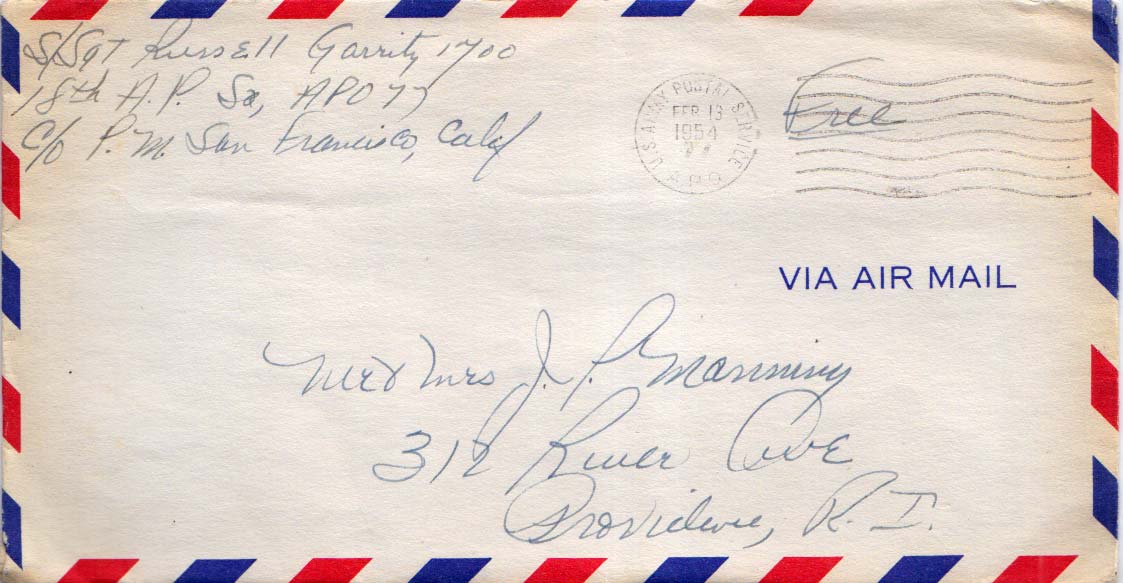 S/Sgt Russell Garrity 1700
18th A. P. Sq, APO 77
c/o P. M. San Francisco, Calif
U.S. ARMY POSTAL SERVICE
FEB 13
1954
A.P.O.
Free
VIA AIR MAIL
Mr & Mrs J. P. Manning
312 River Ave
Providence, R. I.